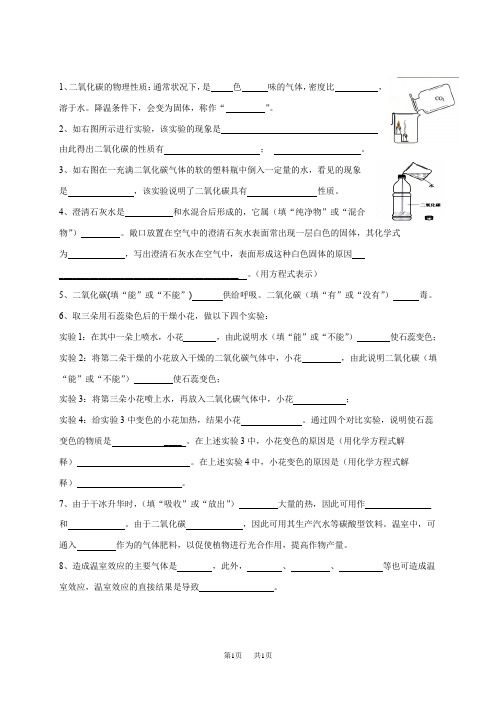 1、二氧化碳的物理性质：通常状况下，是____色____味的气体，密度比________，
溶于水。降温条件下，会变为固体，称作“________”。
2、如右图所示进行实验，该实验的现象是________________________________
由此得出二氧化碳的性质有____________________；____________________。
3、如右图在一充满二氧化碳气体的软的塑料瓶中倒入一定量的水，看见的现象
是______________，该实验说明了二氧化碳具有______________性质。
4、澄清石灰水是________和水混合后形成的，它属（填“纯净物”或“混合
物”）________。敞口放置在空气中的澄清石灰水表面常出现一层白色的固体，其化学式
为____________，写出澄清石灰水在空气中，表面形成这种白色固体的原因__
________________________________________。（用方程式表示）
5、二氧化碳(填“能”或“不能”)______供给呼吸。二氧化碳（填“有”或“没有”）____毒。
6、取三朵用石蕊染色后的干燥小花，做以下四个实验：
实验1：在其中一朵上喷水，小花______，由此说明水（填“能”或“不能”）______使石蕊变色；
实验2：将第二朵干燥的小花放入干燥的二氧化碳气体中，小花________，由此说明二氧化碳（填
“能”或“不能”）________使石蕊变色；
实验3：将第三朵小花喷上水，再放入二氧化碳气体中，小花__________；
实验4：给实验3中变色的小花加热，结果小花____________。通过四个对比实验，说明使石蕊
变色的物质是______________。在上述实验3中，小花变色的原因是（用化学方程式解
释）________________________。在上述实验4中，小花变色的原因是（用化学方程式解
释）________________________。
7、由于干冰升华时，（填“吸收”或“放出”）________大量的热，因此可用作____________
和____________。由于二氧化碳____________，因此可用其生产汽水等碳酸型饮料。温室中，可
通入________作为的气体肥料，以促使植物进行光合作用，提高作物产量。
8、造成温室效应的主要气体是________，此外，________、________、________等也可造成温
室效应，温室效应的直接结果是导致________________。
CO₂
水
二氧化碳
第1页 共1页